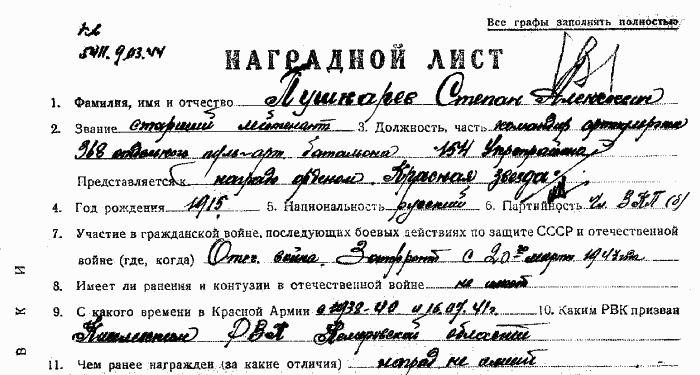 Все графы заполнять полностью
НАГРАДНОЙ ЛИСТ
1. Фамилия, имя и отчество Пушкарев Степан
2. Звание старший лейтенант 3. Должность, часть командир
368 отдельного пульарт. батальона 154 Укрепрайона
Представляется к награде орденом „Красная звезда"
4. Год рождения 1915 5. Национальность русский 6. Партийность чл. ВКП(б)
7. Участие в гражданской войне, последующих боевых действиях по защите СССР и отечественной
войне (где, когда) Отеч. война. Запфронт с 20 марта 1943 года
8. Имеет ли ранения и контузии в отечественной войне не имеет
9. С какого времени в Красной Армии с 1938-40 и 16.07.41г. 10. Каким РВК призван
РВК области
11. Чем ранее награжден (за какие отличия) наград не имеет